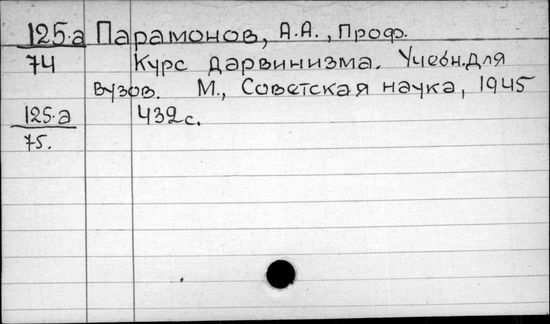 125.а Парамонов, А.А., Проф.
74 Курс дарвинизма. Учебн.для
вузов. М., Советская наука, 1945
125.а 432с.
75.